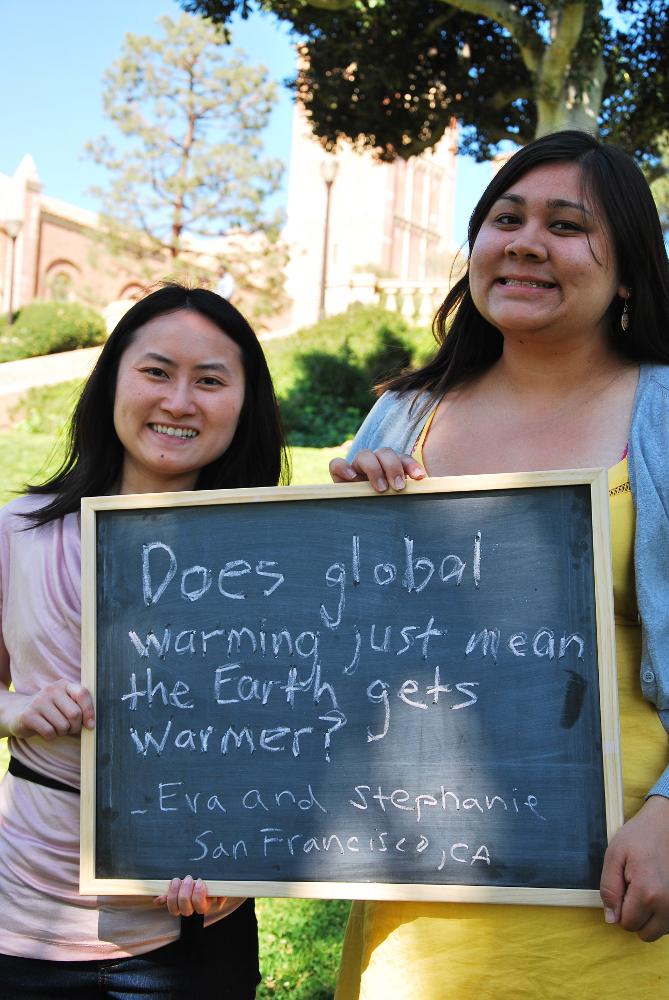 Does global
warming just mean
the Earth gets
warmer?
- Eva and Stephanie
San Francisco, CA